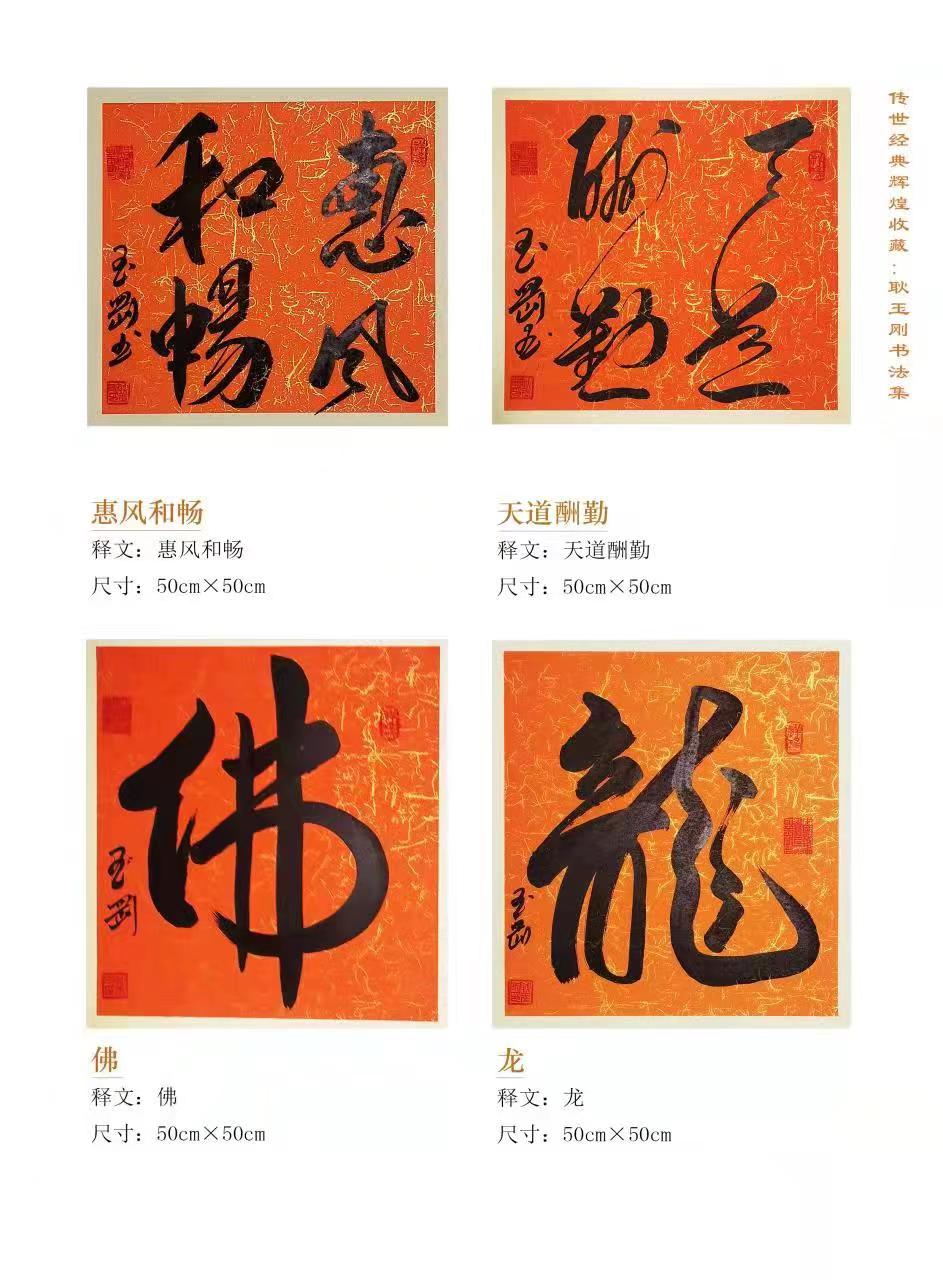 传世经典辉煌收藏：耿玉刚书法集
惠风
和暢
玉剛书
天道
酬勤
玉剛书
惠风和畅
释文：惠风和畅
尺寸：50cm×50cm
天道酬勤
释文：天道酬勤
尺寸：50cm×50cm
佛
玉剛
龍
玉剛
佛
释文：佛
尺寸：50cm×50cm
龙
释文：龙
尺寸：50cm×50cm